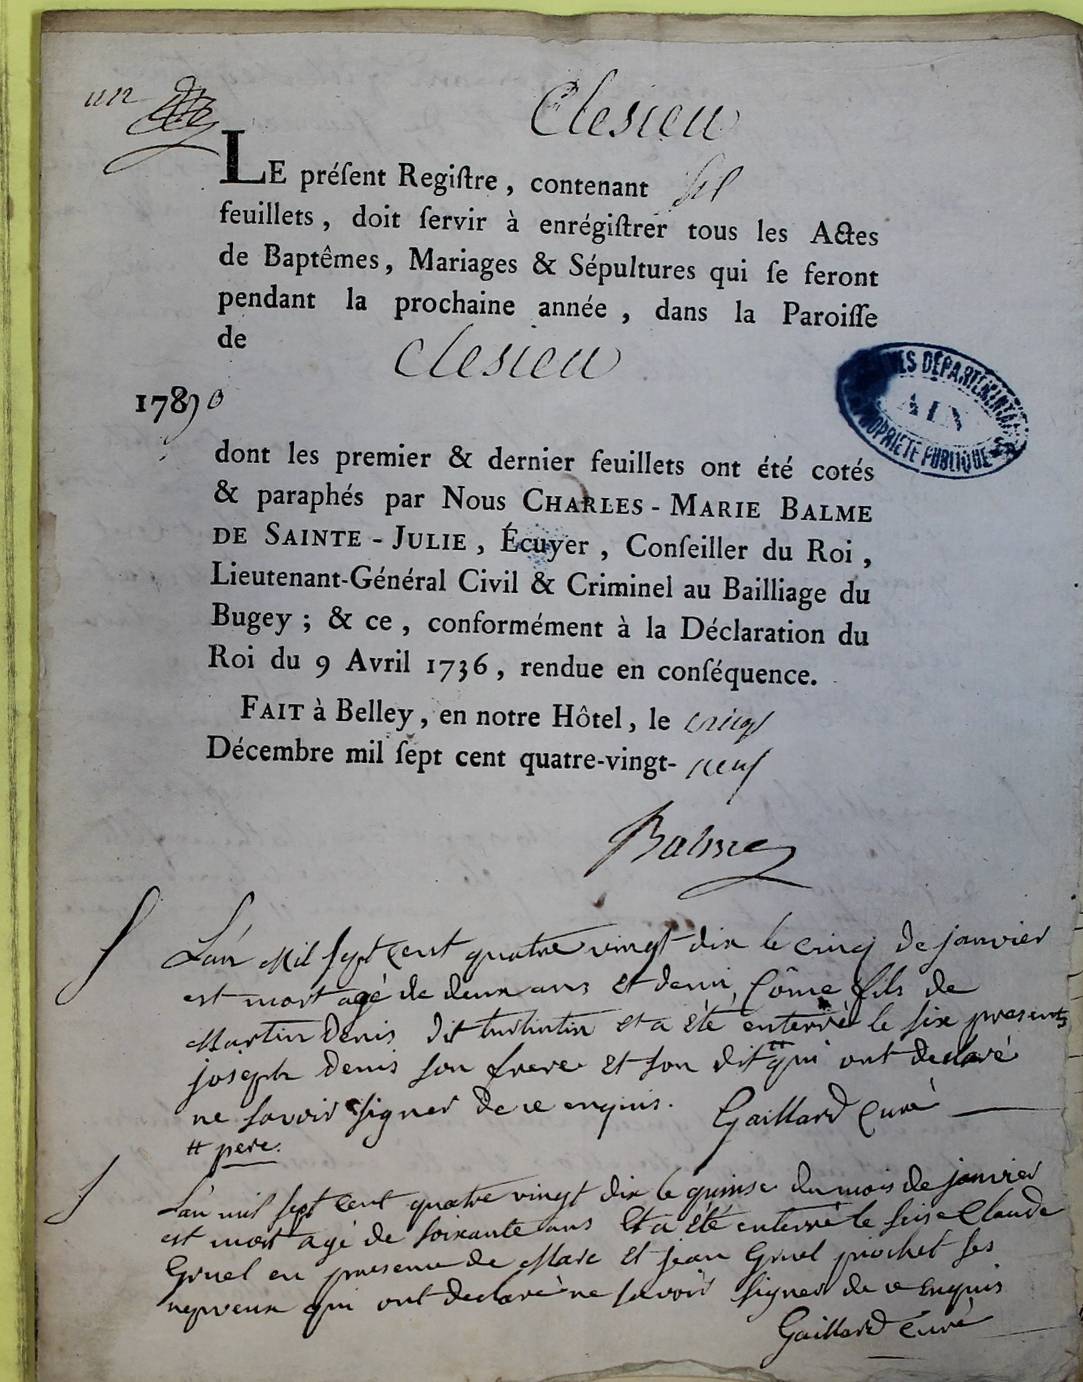 un
Clesieu
LE préſent Regiſtre, contenant
feuillets, doit ſervir à enrégiſtrer tous les Actes
de Baptêmes, Mariages & Sépultures qui ſe feront
pendant la prochaine année, dans la Paroiſſe
de Clesieu
1790
dont les premier & dernier feuillets ont été cotés
& paraphés par Nous CHARLES-MARIE BALME
DE SAINTE-JULIE, Écuyer, Conſeiller du Roi,
Lieutenant-Général Civil & Criminel au Bailliage du
Bugey; & ce, conformément à la Déclaration du
Roi du 9 Avril 1736, rendue en conſéquence.
FAIT à Belley, en notre Hôtel, le vingt
Décembre mil ſept cent quatre-vingt-neuf
Balme
ARCHIVES DÉPARTEMENTALES
AIN
PROPRIÉTÉ PUBLIQUE
L'an Mil sept cent quatre vingt dix le cinq de janvier
est mort agé de deux ans et demi, Côme fils de
Martin Denis dit turlintin et a été enterré le six presents
joseph Denis son frere et son dit # qui ont declaré
ne savoir signer de ce enquis. Gaillard Curé
# pere.
L'an mil sept cent quatre vingt dix le quinse du mois de janvier
est mort agé de soixante ans et a été enterré le seise Claude
Gruel en presence de Marc et jean Gruel piochet ses
nepveux qui ont declaré ne savoir signer de ce enquis
Gaillard Curé